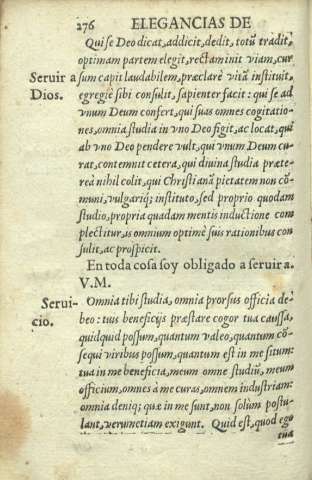 276 ELEGANCIAS DE
Qui se Deo dicat, addicit, dedit, totũ tradit,
optimam partem elegit, rectam init viam, cur
Seruir a sum capit laudabilem, præclarè vitã instituit,
Dios. egregiè sibi consulit, sapienter facit: qui se ad
vnum Deum confert, qui suas omnes cogitatio-
nes, omnia studia in vno Deo figit, ac locat, qui
ab vno Deo pendere vult, qui vnum Deum cu-
rat, contemnit cetera, qui diuina studia præte-
rea nihil colit, qui Christianã pietatem non cõ-
muni, vulgariq; instituto, sed proprio quodam
studio, propria quadam mentis inductione com
plectitur, is omnium optimè suis rationibus con
sulit, ac prospicit.
En toda cosa soy obligado a seruir a.
V.M.
Serui- Omnia tibi studia, omnia prorsus officia de-
cio. beo: tuis beneficijs præstare cogor tua caussa,
quidquid possum, quantum valeo, quantum cõ-
sequi viribus possum, quantum est in me situm:
tua in me beneficia, meum omne studiũ, meum
officium, omnes à me curas, omnem industriam:
omnia deniq; quæ in me sunt, non solùm postu-
lant, verumetiam exigunt. Quid est, quod ego
tua